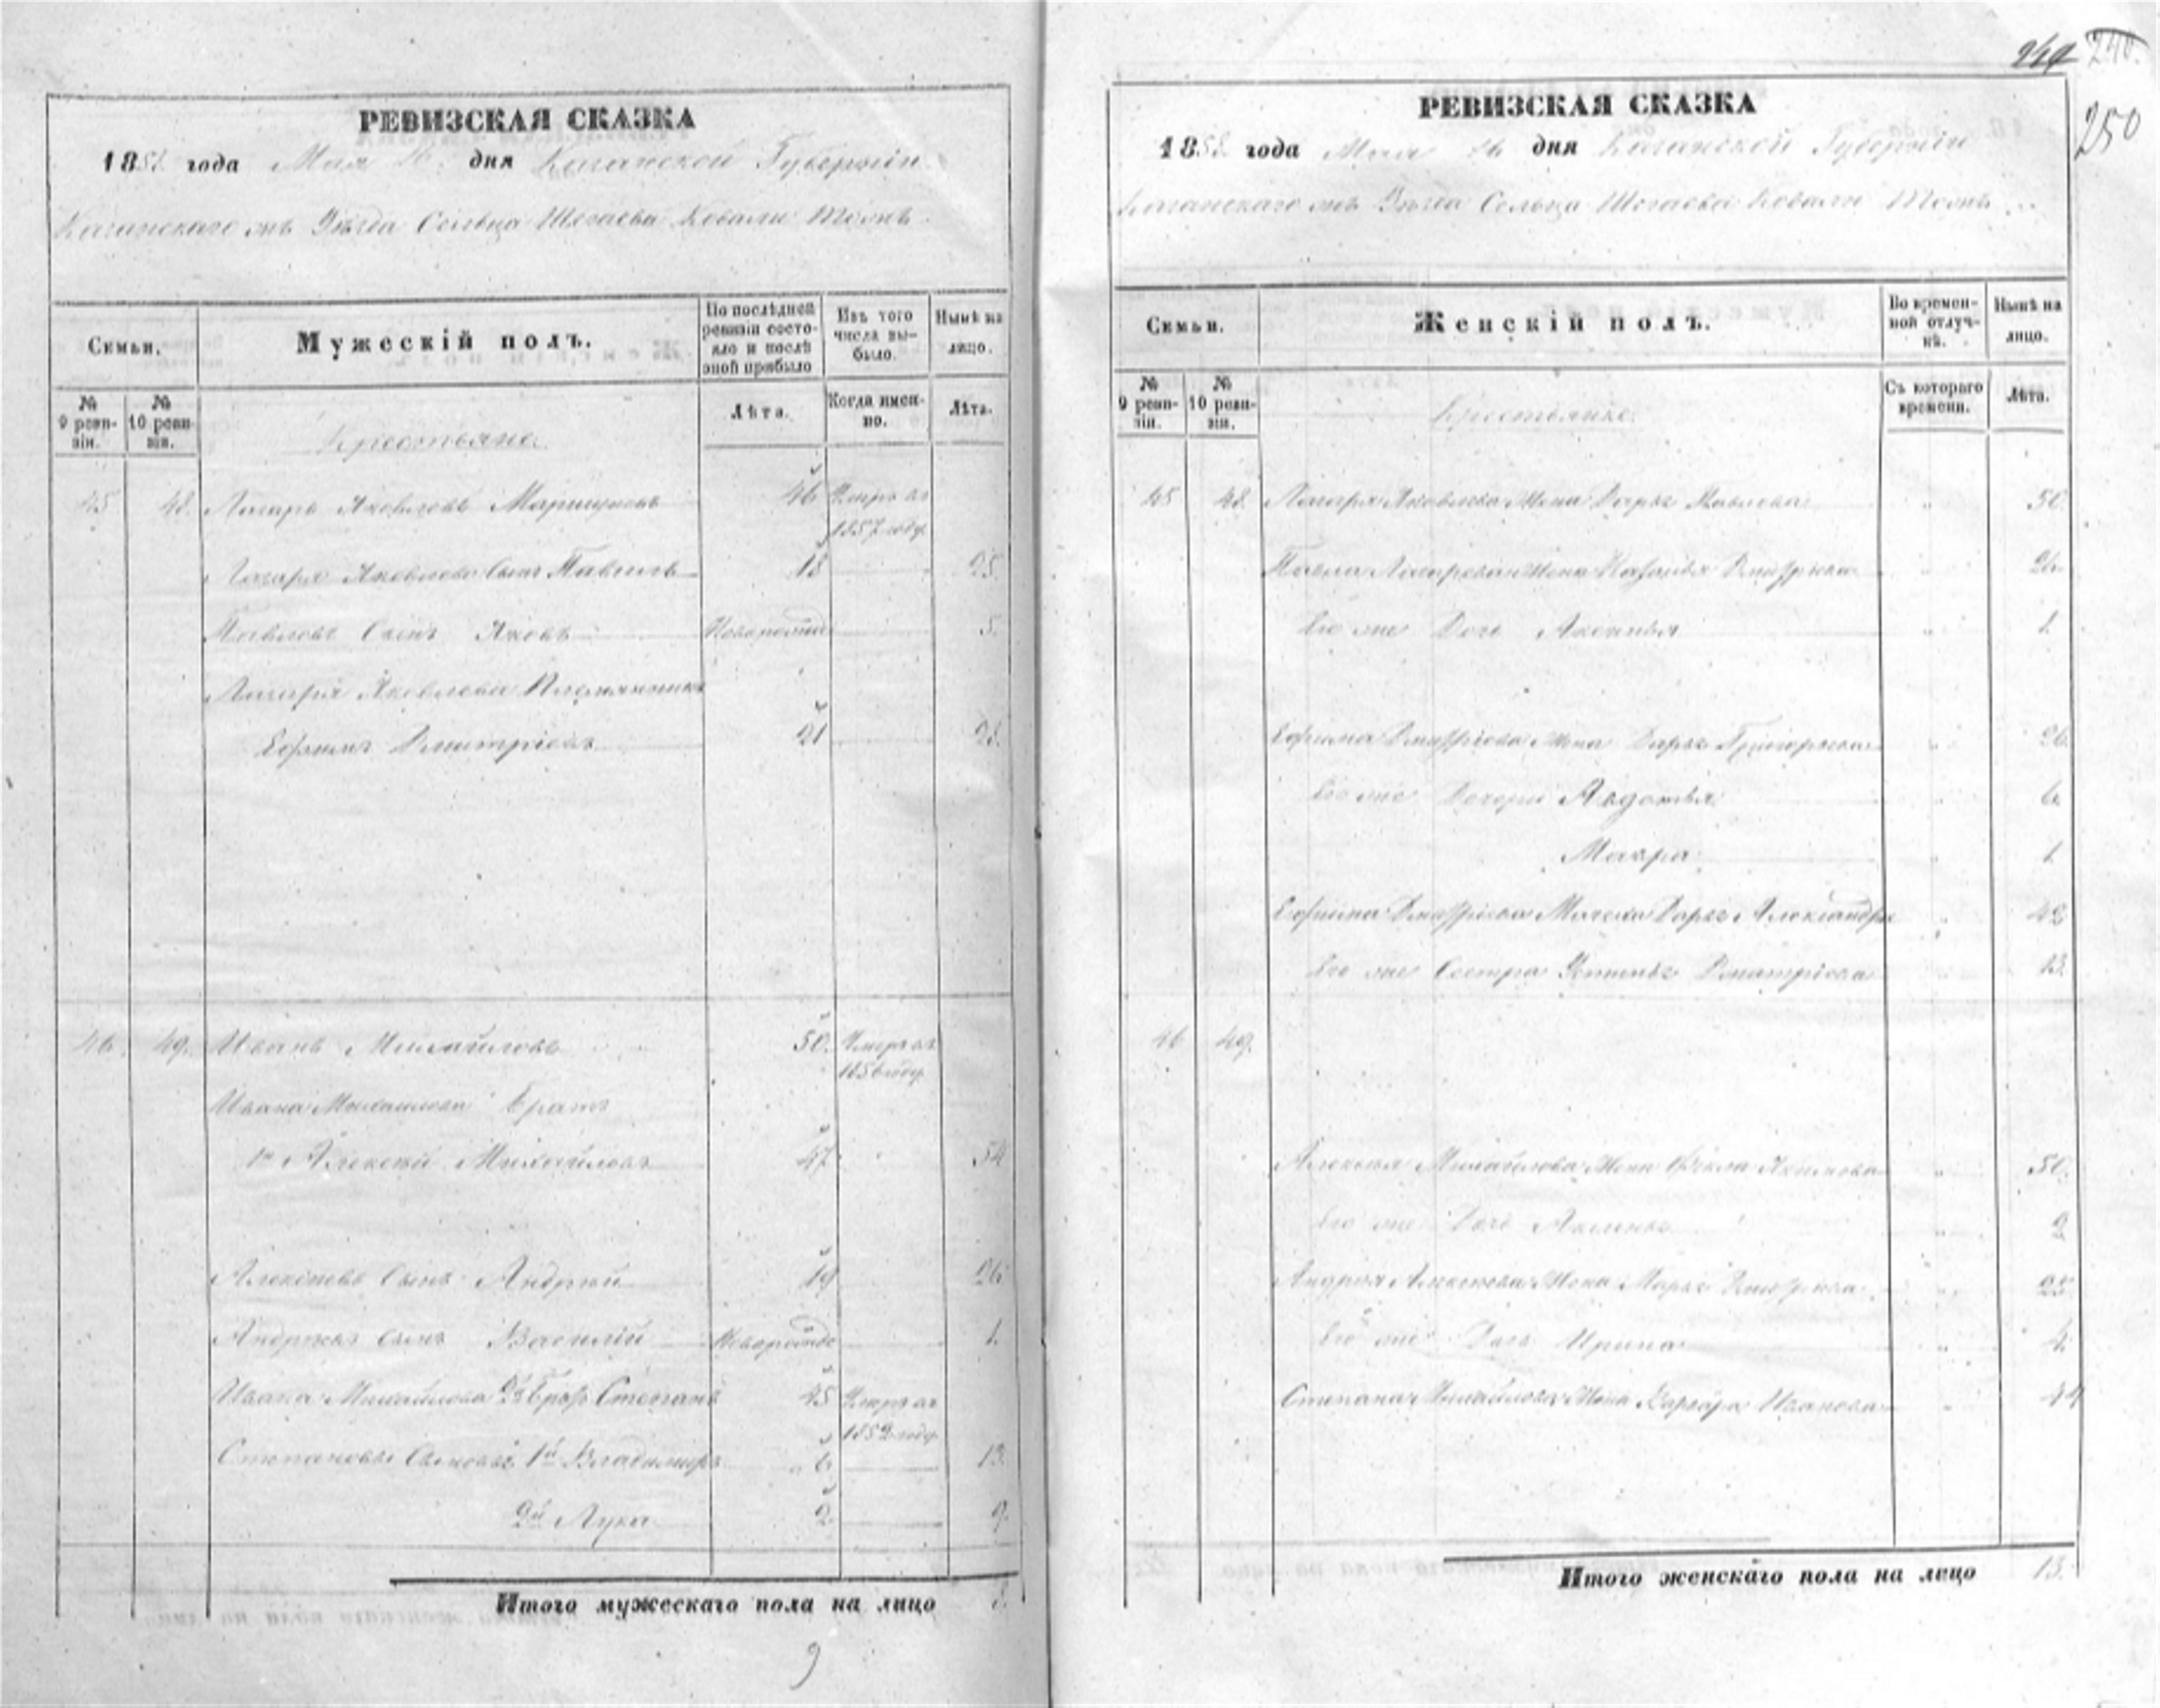 249 240.
250
РЕВИЗСКАЯ СКАЗКА
1858 года Мая дня Казанской Губернiи
Казанскаго Уѣзда Сельца Шигаева Ковали тожъ
Семьи.
Мужескiй полъ.
По послѣдней ревизiи состояло и послѣ оной прибыло
Изъ того числа выбыло.
Нынѣ на лицо.
№ 9 ревизiи.
№ 10 ревизiи.
Крестьяне
Лѣта.
Когда именно.
Лѣта.
45 48. Лазарь Яковлевъ 46 Умеръ въ
1857 году
Лазаря Яковлева Сынъ Павелъ 18 25.
Павловъ Сынъ Яковъ Новорожд 5.
Лазаря Яковлева Племянникъ
Ефимъ Дмитрiевъ 21 28.
46. 49. Иванъ Михайловъ 50. Умеръ въ
1856 году
Ивана Михайлова Братъ
1й Алексѣй Михайловъ 47 54
Алексѣевъ Сынъ Андрей 19 26
Андреевъ Сынъ Василiй Новорожд 1.
Ивана Михайлова 2й Братъ Степанъ 45 Умеръ въ
1852 году
Степановы Сыновья 1й Владимiръ 6 13.
2й Лука 2 9.
Итого мужескаго пола на лицо 8.
9
РЕВИЗСКАЯ СКАЗКА
1858 года Мая дня Казанской Губернiи
Казанскаго Уѣзда Сельца Шигаева Ковали тожъ
Семьи.
Женскiй полъ.
Во временной отлучкѣ.
Нынѣ на лицо.
№ 9 ревизiи.
№ 10 ревизiи.
Крестьянке
Съ котораго времени.
Лѣта.
45 48. Лазаря Яковлева Жена Дарья Павлова " 50.
Павла Лазарева Жена Наталья Дмитрiева " 24
Его же Дочь Аксинья " 1.
Ефима Дмитрiева Жена Дарья Григорьева " 26.
Его же Дочери Авдотья " 6.
Макра " 1.
Ефима Дмитрiева Мачеха Дарья Александр " 42
Его же Сестра Устинья Дмитрiева 13.
46 49.
Алексѣя Михайлова Жена Фекла Акимова " 50.
Его же Дочь Акулина " 2
Андрея Алексѣева Жена Марья Дмитрiева " 25
Его же Дочь Ирина " 4.
Степана Михайлова Жена Варвара Иванова " 44
Итого женскаго пола на лицо 13.